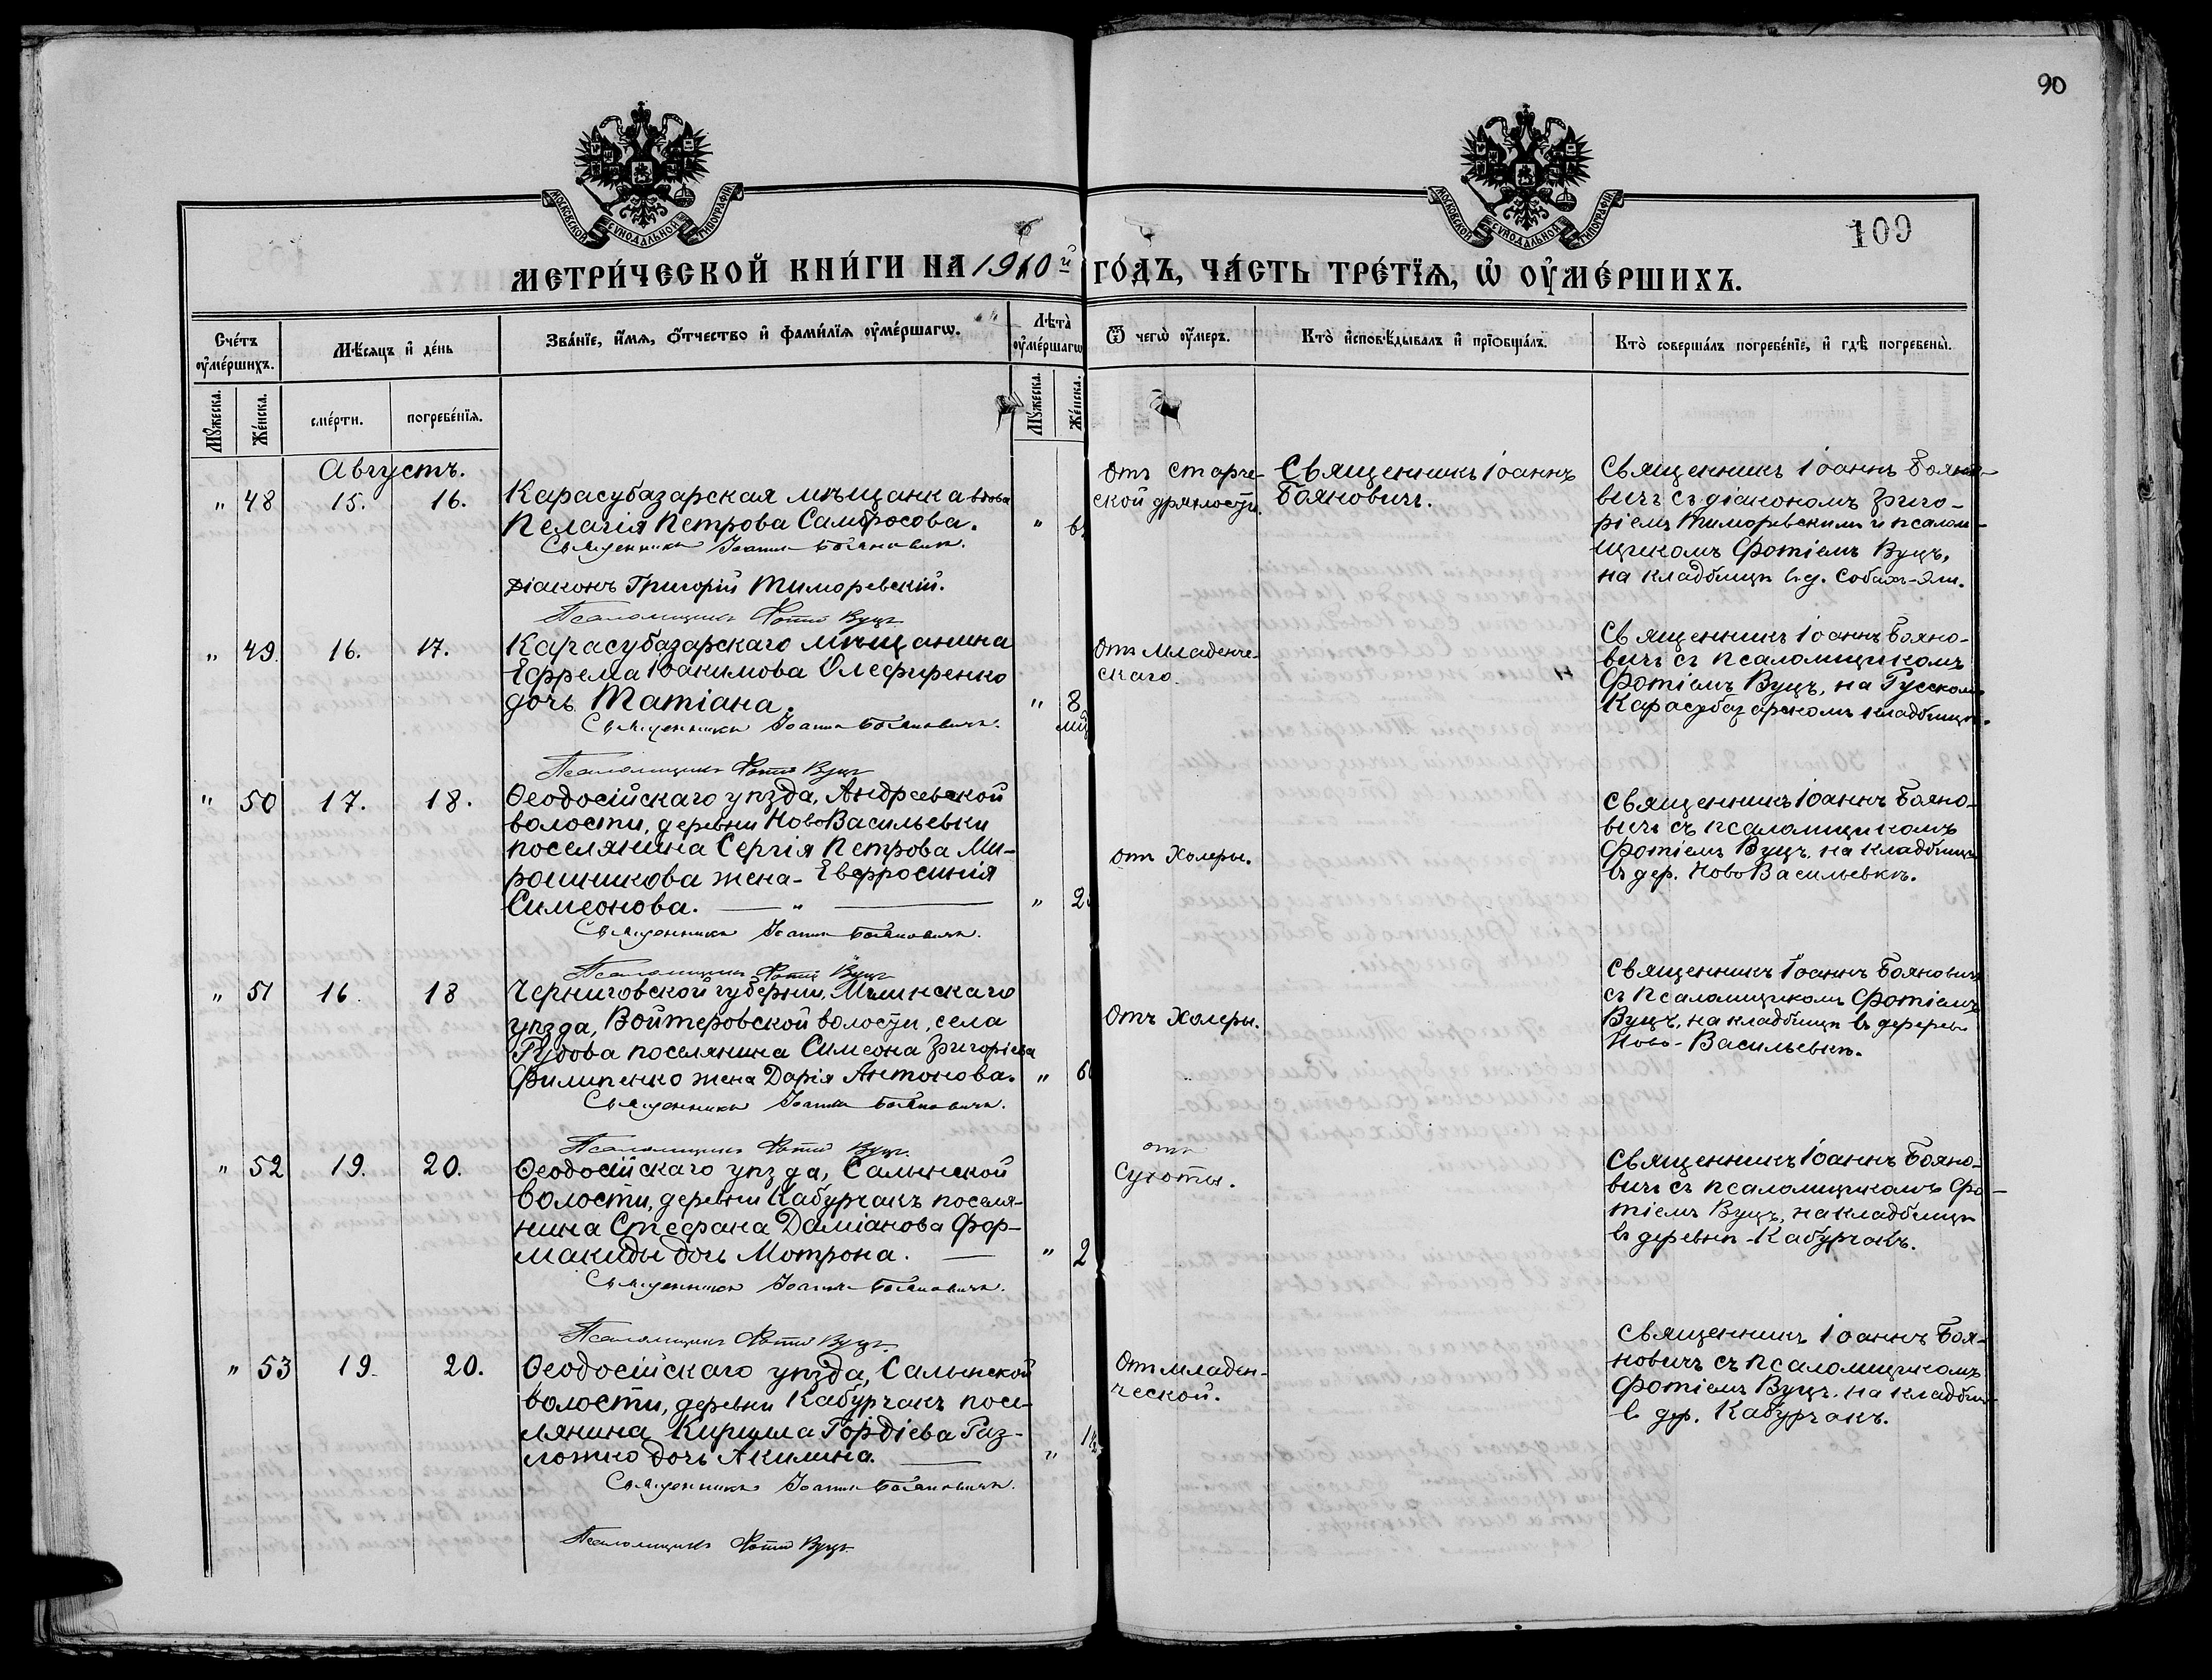 90
109
МОСКОВСКОЙ СѴНОДАЛЬНОЙ ТИПОГРАФІИ
МОСКОВСКОЙ СѴНОДАЛЬНОЙ ТИПОГРАФІИ
МЕТРИ́ЧЕСКОЙ КНИ́ГИ НА 1910й ГО́ДЪ, ЧА́СТЬ ТРЕ́ТІѦ, Ѡ ОУ҆МЕ́РШИХЪ.
Сче́тъ оу҆ме́ршихъ.
Мѣ́сяцъ и҆ де́нь
Зва́нїе, и҆́мя, ѻ҆́тчество и҆ фами́лїя оу҆ме́ршагѡ.
Лѣ̀та оу҆ме́ршагѡ
Ѿ чегѡ̀ оу҆́меръ.
Кто̀ и҆сповѣ́дывалъ и҆ прїѡбща́лъ.
Кто̀ соверша́лъ погребе́нїе, и҆ гдѣ̀ погребены̀.
Мꙋ́жеска.
Же́нска.
сме́рти.
погребе́нїя.
Мꙋ́жеска.
Же́нска.
Августъ.
" 48 15. 16.
Карасубазарская мѣщанка вдова
Пелагія Петрова Самбросова. "
Священникъ Іоаннъ Бояновичъ.
Діаконъ Григорій Тиморевскій.
Псаломщикъ Фотій Вуцъ
Отъ старче-
ской дряхлости.
Священникъ Іоаннъ
Бояновичъ.
Священникъ Іоаннъ Бояно-
вичъ съ діакономъ Григо-
ріемъ Тиморевскимъ и псалом-
щикомъ Фотіемъ Вуцъ,
на кладбищѣ въ д.
" 49. 16. 17.
Карасубазарскаго мѣщанина
Ефрема Іоакимова Олефиренко
дочь Татіана. " 8
мѣ
Священникъ Іоаннъ Бояновичъ.
Псаломщикъ Фотій Вуцъ
Отъ младенче-
скаго.
Священникъ Іоаннъ Бояно-
вичъ съ псаломщикомъ
Фотіемъ Вуцъ, на Русскомъ
Карасубазарскомъ кладбищѣ.
" 50 17. 18.
Ѳеодосійскаго уѣзда, Андреевской
волости, деревни НовоВасильевки
поселянина Сергія Петрова Ми-
рошникова жена - Евфросинія
Симеонова. — " — " 2
Священникъ Іоаннъ Бояновичъ.
Псаломщикъ Фотій Вуцъ
отъ Холеры.
Священникъ Іоаннъ Бояно-
вичъ съ псаломщикомъ
Фотіемъ Вуцъ, на кладбищѣ
въ дер. НовоВасильевкѣ.
" 51 16. 18
Черниговской губерніи, Мглинскаго
уѣзда, Войтеровской волости, села
Рудова поселянина Симеона Григоріева
Филипенко жена Дарія Антонова. " 6
Священникъ Іоаннъ Бояновичъ.
Псаломщикъ Фотій Вуцъ.
Отъ Холеры.
Священникъ Іоаннъ Бояновичъ
съ псаломщикомъ Фотіемъ
Вуцъ, на кладбищѣ въ
Ново-Васильевкѣ.
" 52 19. 20.
Ѳеодосійскаго уѣзда, Салынской
волости, деревни Кабурчакъ поселя-
нина Стефана Даміанова Фор-
макиды дочь Мотрона. — " 2
Священникъ Іоаннъ Бояновичъ.
Псаломщикъ Фотій Вуцъ
отъ
Сухоты.
Священникъ Іоаннъ Бояно-
вичъ съ псаломщикомъ Фо-
тіемъ Вуцъ, на кладбищѣ
въ деревнѣ - Кабурчакъ.
" 53 19. 20.
Ѳеодосійскаго уѣзда, Салынской
волости, деревни Кабурчакъ посе-
лянина Кирилла Гордіева Раз-
ложко дочь Акилина. — "
Священникъ Іоаннъ Бояновичъ.
Псаломщикъ Фотій Вуцъ
Отъ младен-
ческой.
Священникъ Іоаннъ Боя-
новичъ съ псаломщикомъ
Фотіемъ Вуцъ, на кладбищ
въ дер. Кабурчакъ.